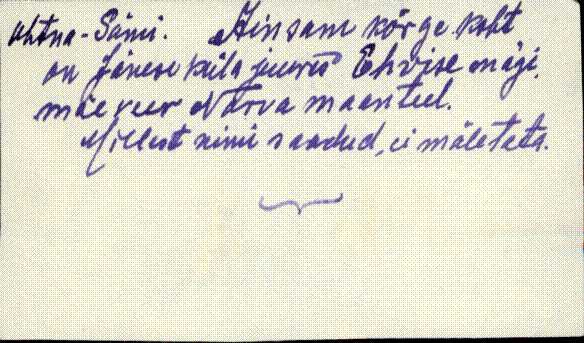 Uhtna-Sämi. Ainsam kõrge koht
on Jänese küla juures Ehvise mägi,
mäe veer Narva maanteel.
Millest nimi saadud, ei mäletata.